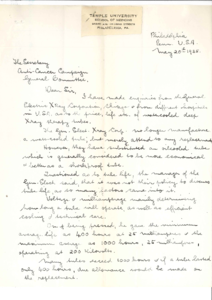 TEMPLE UNIVERSITY
SCHOOL OF MEDICINE
PHILADELPHIA, PA.
Philadelphia
Penn U.S.A.
May 20th 1930.
The Secretary
Anti-Cancer Campaign
General Committee,
Dear Sir,
I have made enquiries from different
X Ray Companies, and from different hospitals
in U.S.A. as to the life of deep
Xray therapy tubes.
The Gen. Elect. Xray Corp. no longer manufacture
a tube, but merely attend to any replacements
However, they have substituted an oil cooled tube,
which is generally considered to be more economical
a shortlived tube.
Questioned as to tube life, the manager of the
Gen. Elect said, that it was not their policy to discuss
tube life, as so many factors
Voltage & milliamperage mainly determining
how long a tube will operate as well as efficient
cooling & technical care.
On being pressed, he gave the minimum
life at 400 hours at 25 milliamperes & the
maximum average at 1000 hours, 25 milliamperes,
operating at 200 Kilovolts.
1000 hours & if a tube lasted
only 400 hours, an allowance would be made on
the replacement.